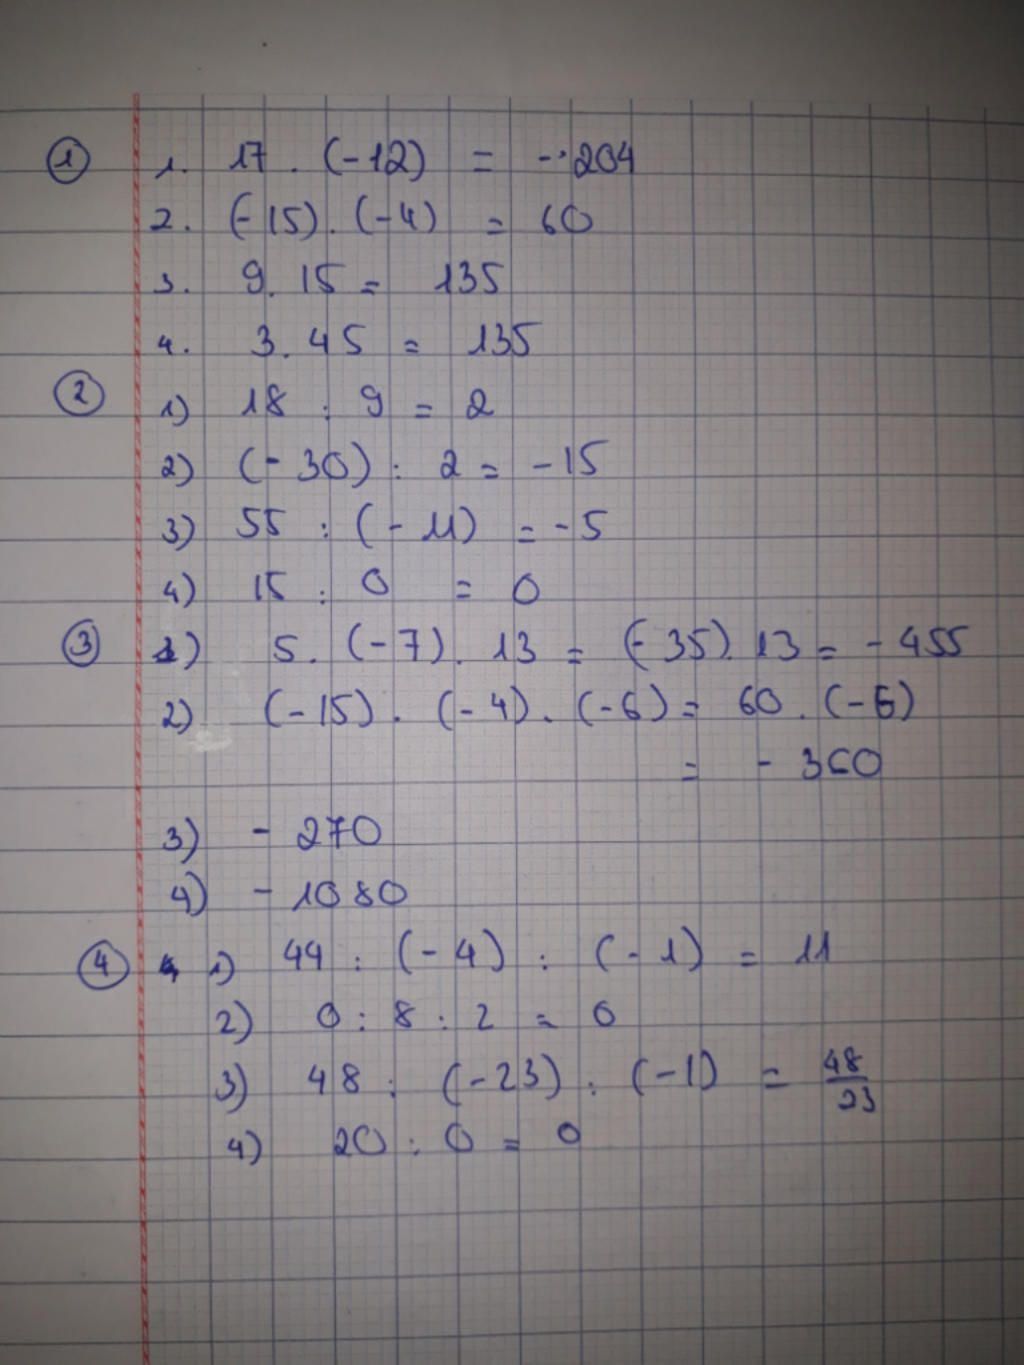 ① 1. 17 . (-12) = -204
2. (-15) . (-4) = 60
3. 9 . 15 = 135
4. 3 . 45 = 135
② 1) 18 : 9 = 2
2) (-30) : 2 = -15
3) 55 : (-11) = -5
4) 15 : 0 = 0
③ 1) 5 . (-7) . 13 = (-35) . 13 = -455
2) (-15) . (-4) . (-6) = 60 . (-6)
= -360
3) -270
4) -1080
④ 1) 44 : (-4) : (-1) = 11
2) 0 : 8 : 2 = 0
3) 48 : (-23) : (-1) = 48/23
4) 20 : 0 = 0